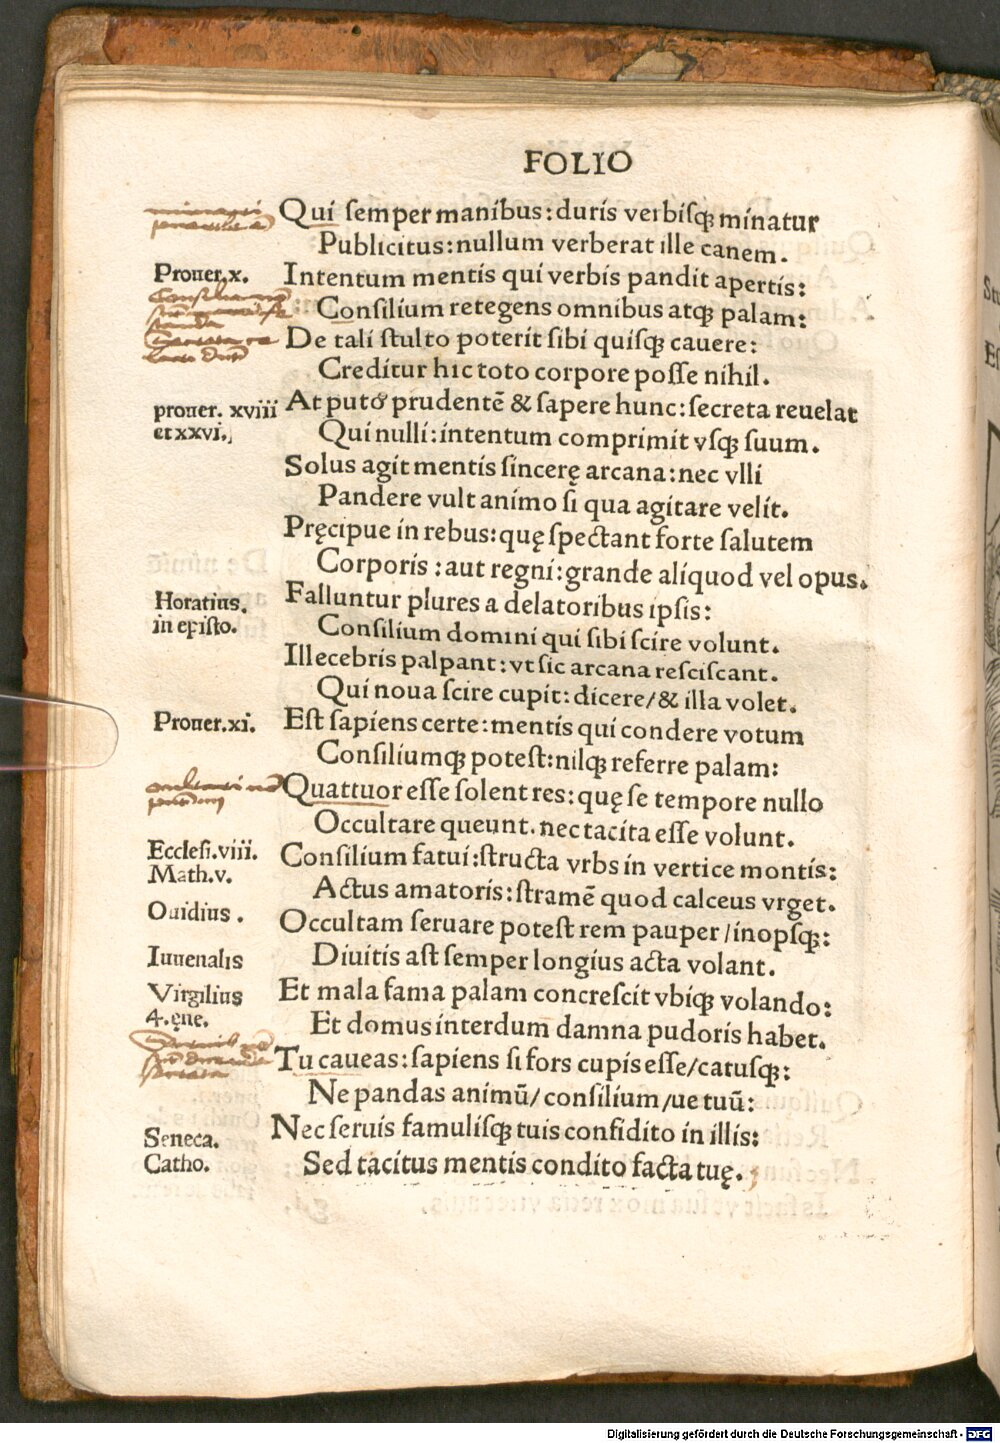 FOLIO
Qui ſemper manibus: duris verbiſqꝫ minatur
Publicitus: nullum verberat ille canem.
Prouer.x.
Intentum mentis qui verbis pandit apertis:
Conſilium retegens omnibus atqꝫ palam:
De tali ſtulto poterit ſibi quiſqꝫ cauere:
Creditur hic toto corpore poſſe nihil.
proner. xviii
et xxvi.
At puto prudentē & ſapere hunc: ſecreta reuelat
Qui nulli: intentum comprimit vſqꝫ ſuum.
Solus agit mentis ſincerę arcana: nec vlli
Pandere vult animo ſi qua agitare velit.
Pręcipue in rebus: quę ſpectant forte ſalutem
Corporis: aut regni: grande aliquod vel opus.
Horatius.
in epiſto.
Falluntur plures a delatoribus ipſis:
Conſilium domini qui ſibi ſcire volunt.
Illecebris palpant: vt ſic arcana reſciſcant.
Qui noua ſcire cupit: dicere/& illa volet.
Proner.xi.
Eſt ſapiens certe: mentis qui condere votum
Conſiliumqꝫ poteſt: nilqꝫ referre palam:
Quattuor eſſe ſolent res: quę ſe tempore nullo
Occultare queunt. nec tacita eſſe volunt.
Eccleſi.viii.
Math.v.
Conſilium fatui: ſtructa vrbs in vertice montis:
Actus amatoris: ſtramē quod calceus vrget.
Ouidius.
Occultam ſeruare poteſt rem pauper/inopſqꝫ:
Iuuenalis
Diuitis aſt ſemper longius acta volant.
Virgilius
4.ęne.
Et mala fama palam concreſcit vbiqꝫ volando:
Et domus interdum damna pudoris habet.
Tu caueas: ſapiens ſi fors cupis eſſe/catuſqꝫ:
Ne pandas animū/ conſilium/ue tuū:
Seneca.
Catho.
Nec ſeruis famuliſqꝫ tuis confidito in illis:
Sed tacitus mentis condito facta tuę.
Digitalisierung gefördert durch die Deutsche Forschungsgemeinschaft - DFG